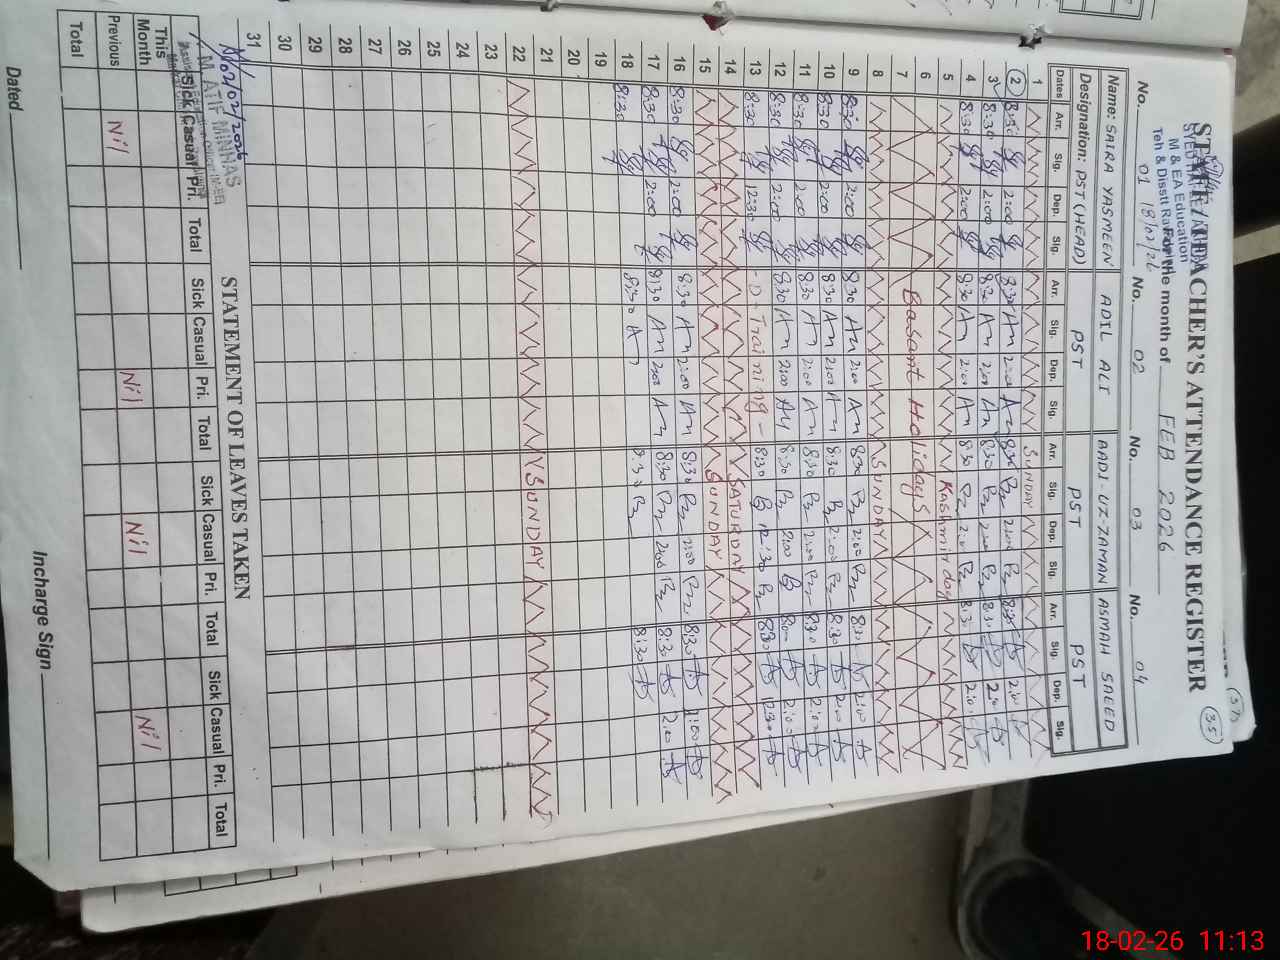 STAFF/TEACHER'S ATTENDANCE REGISTER
35
M & EA Education
For the month of FEB 2026
18/02/26
No. 01 No. 02 No. 03 No. 04
Name: SAIRA YASMEEN ADIL ALI BADI-UZ-ZAMAN ASMAH SAEED
Designation: PST (HEAD) PST PST PST
Dates Arr. Sig. Dep. Sig. Arr. Sig. Dep. Sig. Arr. Sig. Dep. Sig. Arr. Sig. Dep. Sig.
1 SUNDAY
2 8:30 2:00 8:30 2:00 8:30 2:00 8:30 2:00
3 8:30 2:00 8:30 2:00 8:30 2:00 8:30 2:00
4 8:30 2:00 8:30 2:00 8:30 2:00 8:30 2:00
5 Kashmir day
6
7 Basant Holidays
8 SUNDAY
9 8:30 2:00 8:30 2:00 8:30 2:00 8:30 2:00
10 8:30 2:00 8:30 2:00 8:30 2:00 8:30 2:00
11 8:30 2:00 8:30 2:00 8:30 2:00 8:30 2:00
12 8:30 2:00 8:30 2:00 8:30 2:00 8:30 2:00
13 8:30 12:30 - D - Training - 8:30 12:30 8:30 12:30
14 SATURDAY
15 SUNDAY
16 8:30 2:00 8:30 2:00 8:30 2:00 8:30 2:00
17 8:30 2:00 8:30 2:00 8:30 2:00 8:30 2:00
18 8:30 8:30 8:30 8:30
19
20
21
22 SUNDAY
23
24
25
26
27
28
29
30
31
02/02/2026
M. ATIF MINHAS
STATEMENT OF LEAVES TAKEN
Sick Casual Pri. Total Sick Casual Pri. Total Sick Casual Pri. Total Sick Casual Pri. Total
This Month
Previous Nil Nil Nil Nil
Total
Dated Incharge Sign
18-02-26 11:13